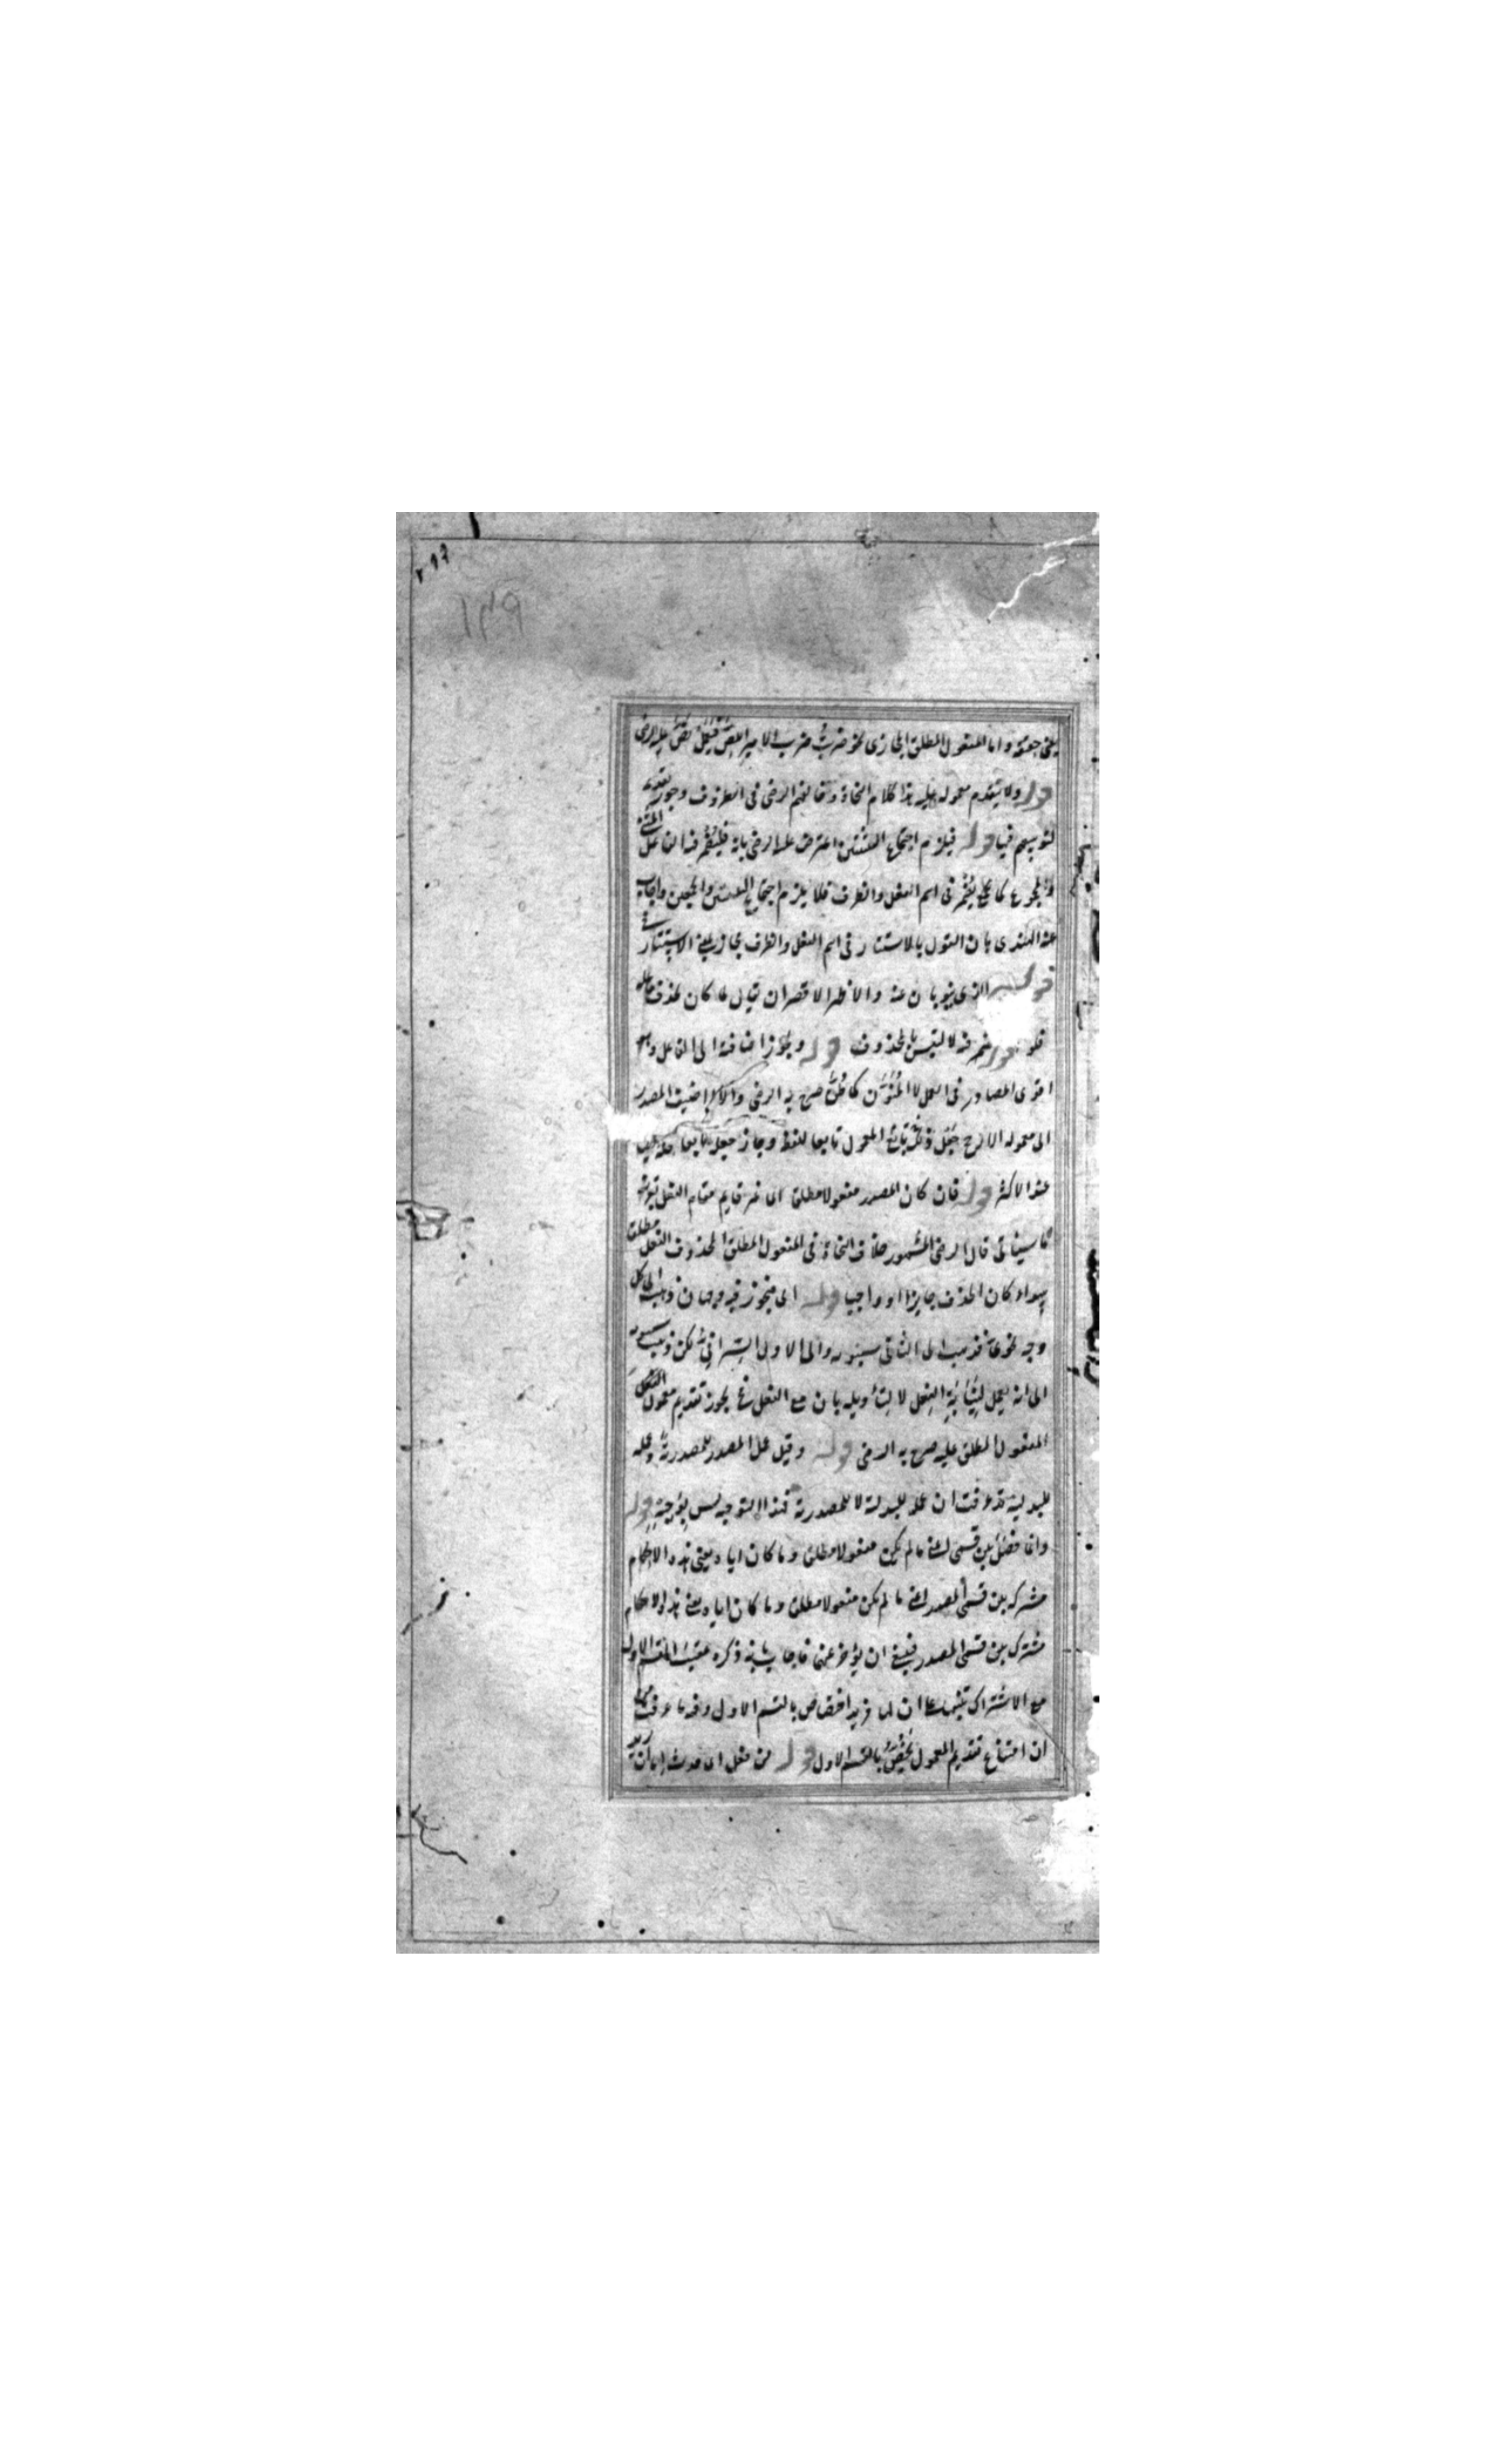 ٢٩٩
١٣٩
على حقيقته واما المفعول المطلق المجازى نحو ضربت ضرب الامير اللص نص عليه الرضى
قوله ولا يتقدم معموله عليه هذا كلام النحاة وخالفهم الرضى فى الظروف وجوز تقديمه
لتوسعهم فيها قوله فيلزم اجتماع التثنيتين اعترض عليه الرضى بانه فليضمر فيه الفاعل المثنى
والمجموع كما يضمر فى اسم الفعل والظرف فلا يلزم اجتماع التثنيتين والجمعين واجاب
عنه الهندى بان القول بالاستتار فى اسم الفعل والظرف مجاز
قوله الذى ينوبان عنه والاظهر الاقصر ان يقال لما كان يحذف فاعله
فلو اضمر فيه لا لتبس بالمحذوف قوله ويجوز اضافته الى الفاعل وهو
اقوى المصادر فى العمل لا المنون كما ظن صرح به الرضى واذا اضيف المصدر
الى معموله الارجح جعل تابع المعمول تابعا للفظ وجاز جعله تابعا
عند الاكثر قوله فان كان المصدر مفعولا مطلقا اى غير قايم مقام الفعل
كما سيأتى قال الرضى المشهور خلاف النحاة فى المفعول المطلق المحذوف الفعل مطلقا
سواء كان الحذف جايزا او واجبا قوله اى فيجوز فيه وجهان ذهب الى كل
وجه نحوى فذهب الى الثانى سيبويه والى الاول السيرافى لكن ذهب سيبويه
الى انه يعمل لنيابة الفعل لا لتأويله بان مع الفعل فح يجوز تقديم معمول
المفعول المطلق عليه صرح به الرضى قوله وقيل عمل المصدر للمصدرية وعمله
للبدلية قد عرفت ان عمله للبدلية لا للمصدرية فهذا التوجيه ليس بوجيه قوله
وانما فصل بين قسمى اعنى ما لم يكن مفعولا مطلقا وما كان اياه يعنى هذه الاحكام
مشتركة بين قسمى المصدر اعنى ما لم يكن مفعولا مطلقا وما كان اياه يعنى هذه الاحكام
مشتركة بين قسمى المصدر فينبغى ان يؤخر عنهما فاجاب بانه ذكره عقيب القسم الاول
مع الاشتراك تنبيها على ان لها مزيد اختصاص بالقسم الاول وفيه ما عرفت من
ان امتناع تقديم المعمول يختص بالقسم الاول قوله من فعل اى حدث